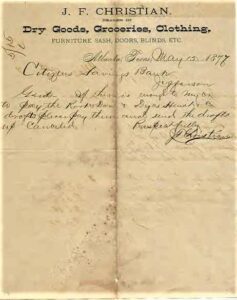 J. F. CHRISTIAN,
DEALER IN
Dry Goods, Groceries, Clothing,
FURNITURE SASH, DOORS, BLINDS, ETC.
Atlanta, Texas, May 15, 1897
Citizens Savings Bank
Jefferson
Gents. If there is money to my Cr
to pay the &
drafts please pay them and send the drafts
up Canceled. Respectfully
J F Christian